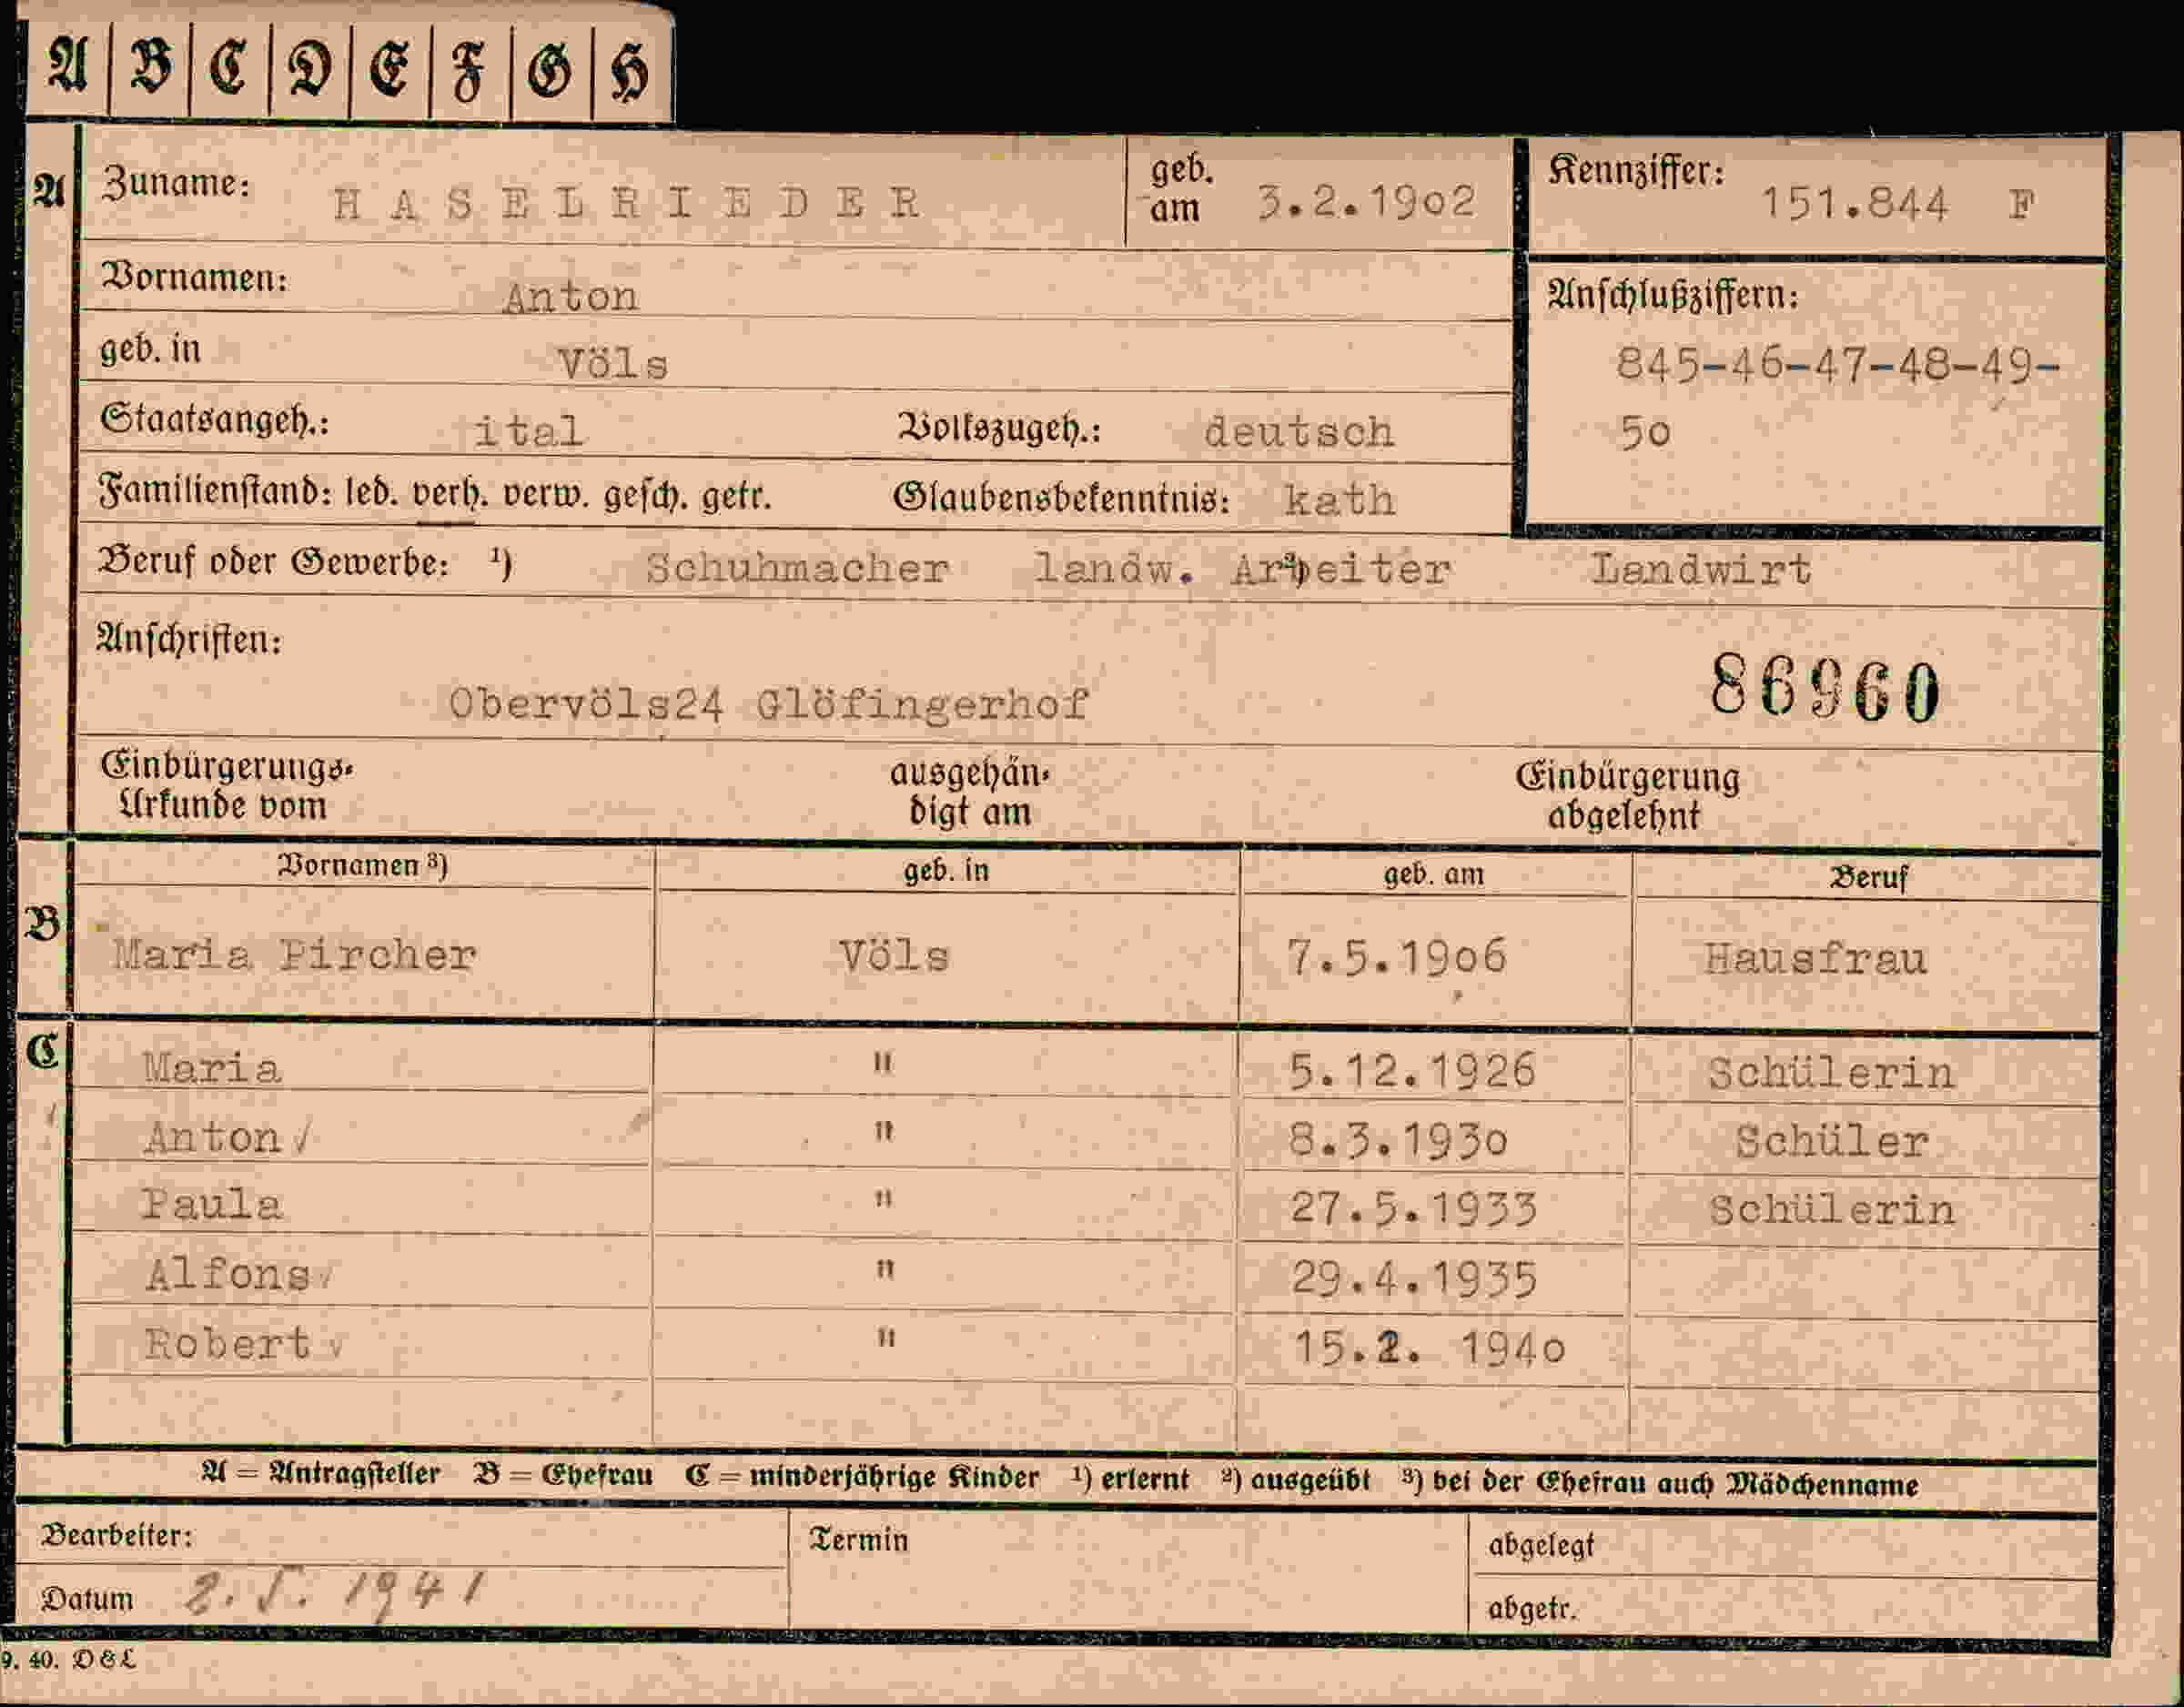 A B C D E F G H
A Zuname: HASELRIEDER geb. am 3.2.1902 Kennziffer: 151.844 F
Vornamen: Anton Anschlußziffern:
geb. in Völs 845-46-47-48-49-
Staatsangeh.: ital Volkszugeh.: deutsch 50
Familienstand: led. verh. verw. gesch. getr. Glaubensbekenntnis: kath
Beruf oder Gewerbe: ¹) Schuhmacher landw. Arbeiter ²) Landwirt
Anschriften:
Obervöls24 Glöfingerhof 86960
Einbürgerungs-Urkunde vom ausgehändigt am Einbürgerung abgelehnt
Vornamen ³) geb. in geb. am Beruf
B Maria Pircher Völs 7.5.1906 Hausfrau
C Maria " 5.12.1926 Schülerin
Anton √ " 8.3.1930 Schüler
Paula " 27.5.1933 Schülerin
Alfons √ " 29.4.1935
Robert √ " 15.2. 1940
A = Antragsteller B = Ehefrau C = minderjährige Kinder ¹) erlernt ²) ausgeübt ³) bei der Ehefrau auch Mädchenname
Bearbeiter: Termin abgelegt
Datum 2.5.1941 abgetr.
9. 40. D&L